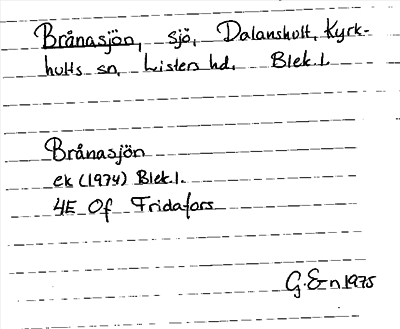 Brånasjön, sjö, Dalanshult, Kyrk-
hults sn, Listers hd. Blek.l.
Brånasjön
ek (1974) Blek.l.
4E 0f Fridafors
G. E-n 1975